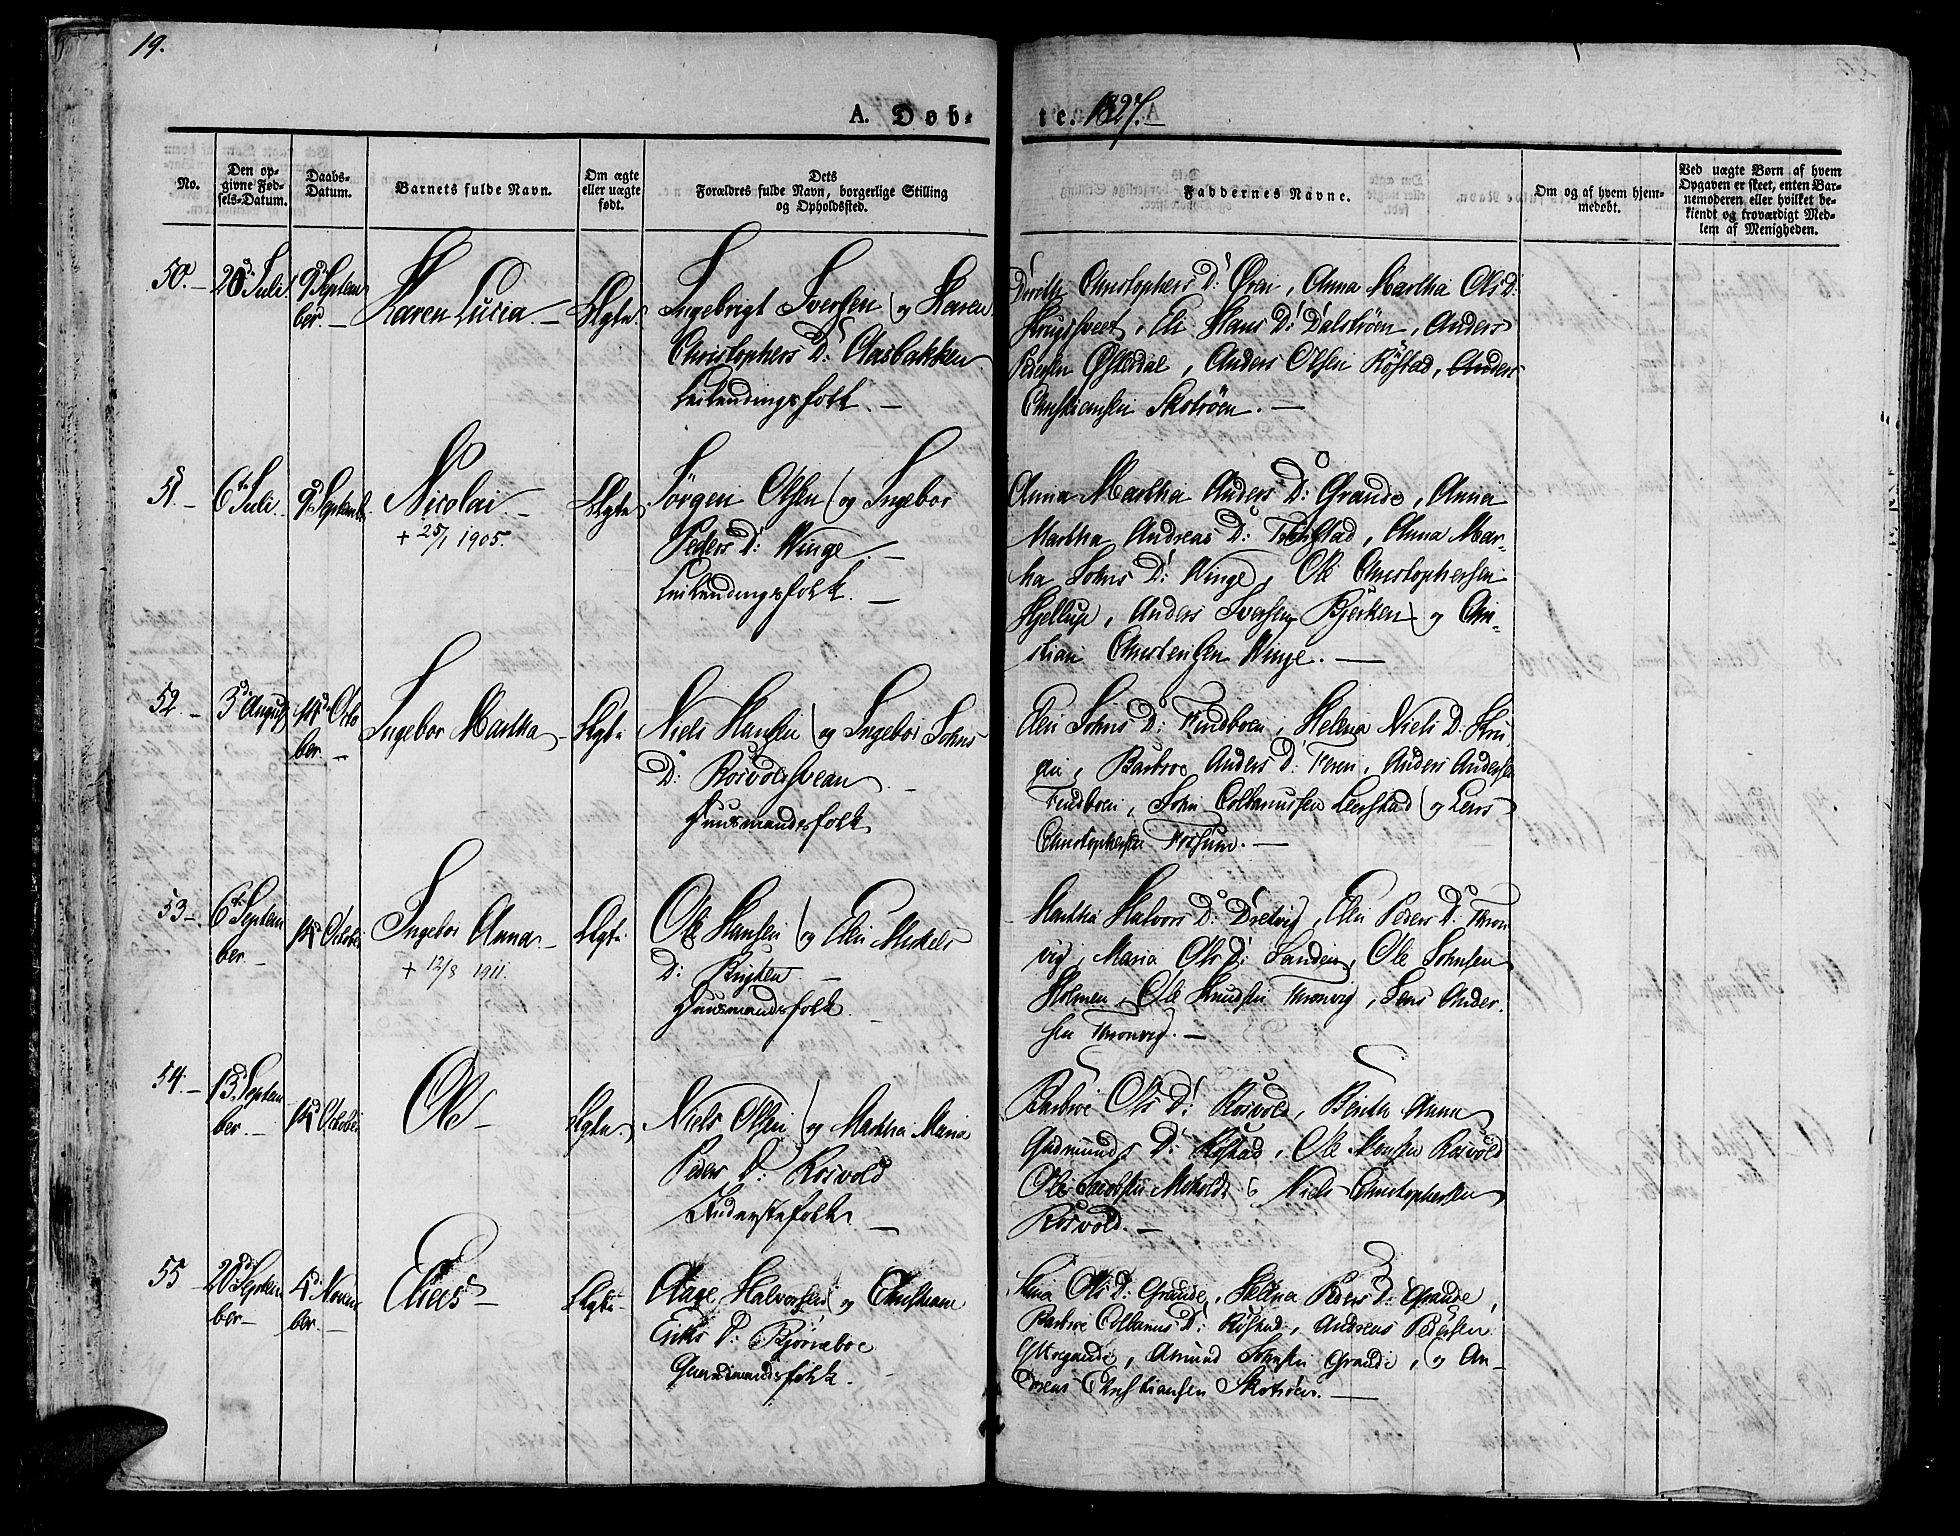 19.
A. Døb-
te. 1827.
No.
Den op-
givne Fød-
sels-Datum.
Daabs-
Datum.
Barnets fulde Navn.
Om ægte
eller uægte
født.
Dets
Forældres fulde Navn, borgerlige Stilling
og Opholdssted.
Faddernes Navne.
Om og af hvem hjem-
medøbt.
Ved uægte Børn af hvem
Opgaven er skeet, enten Bar-
nemoderen eller hvilket be-
kiendt og troværdigt Med-
lem af Menigheden.
50. 20de Juli 9de Septem
ber.
Karen Lucia
Ægte
Ingebrigt Iversen og Karen
Christophers D: Aasbakken
Leilendingsfolk.
Christophers D: Anna Martha Ols D:
Eli Hans D: Dalstrøen, Anders
Pedersen Anders Olsen Røstad, Anders
Christiansen Skotrøen.
51. 6te Juli 9de Septembr
Nicolai
+ 25/1 1905.
Ægte
Jørgen Olsen og Ingebor
Peders D: Winge
Leilendingsfolk.
Anna Martha Anders D: Grande, Anna
Martha Andreas D: Anna Mar-
tha Johns D: Winge, Ole Christophersen
Hjellup, Anders Iversen Bjerken og Chri-
stian Christensen Winge.
52. 3de August 14de Octo
ber
Ingebor Martha
Ægte
Niels Hansen og Ingebor Johns
D: Rosvoldsvean
Huusmandsfolk
Elen Johns D: Findboen, Helena Niels D:
Barbroe Anders D: Feren, Anders Andersen
Findboen, John Colbanussen Leerstad og Lars
Christophersen Fossum.
53 6te Septem
ber 14de October
Ingebor Anna
+ 12/8 1911.
Ægte
Ole Hansen og Elen Mikels
D:
Huusmandsfolk.
Martha Halvors D: Elen Peders D: Thron
vig, Maria Ols D: Sanden, Ole Johnsen
Holmen, Ole Knudsen Thronvig, Jens Ander-
sen Thronvig.
54. 13de Septem
ber. 14de October
Ole
Ægte
Niels Olsen og Martha Maria
Peders D: Rosvold
Inderstefolk
Barbroe Ols D: Rosvold, Berith Anna
Gudmunds D: Røstad, Ole Rosvold
Ole Jacobsen Niels Christophersen
Rosvold.
55 20de Septem
ber 4de Novem
ber.
Elias
Ægte
Aage Halvorsen og Christiane
Eriks D: Bjørnaboe
Gaardmandsfolk.
Ols D: Grande, Helena Peders D: Grande,
Barbroe Colbanus D: Røstad, Andreas Pedersen
Amund Johnsen Grande, og An-
dreas Christiansen Skotrøen.